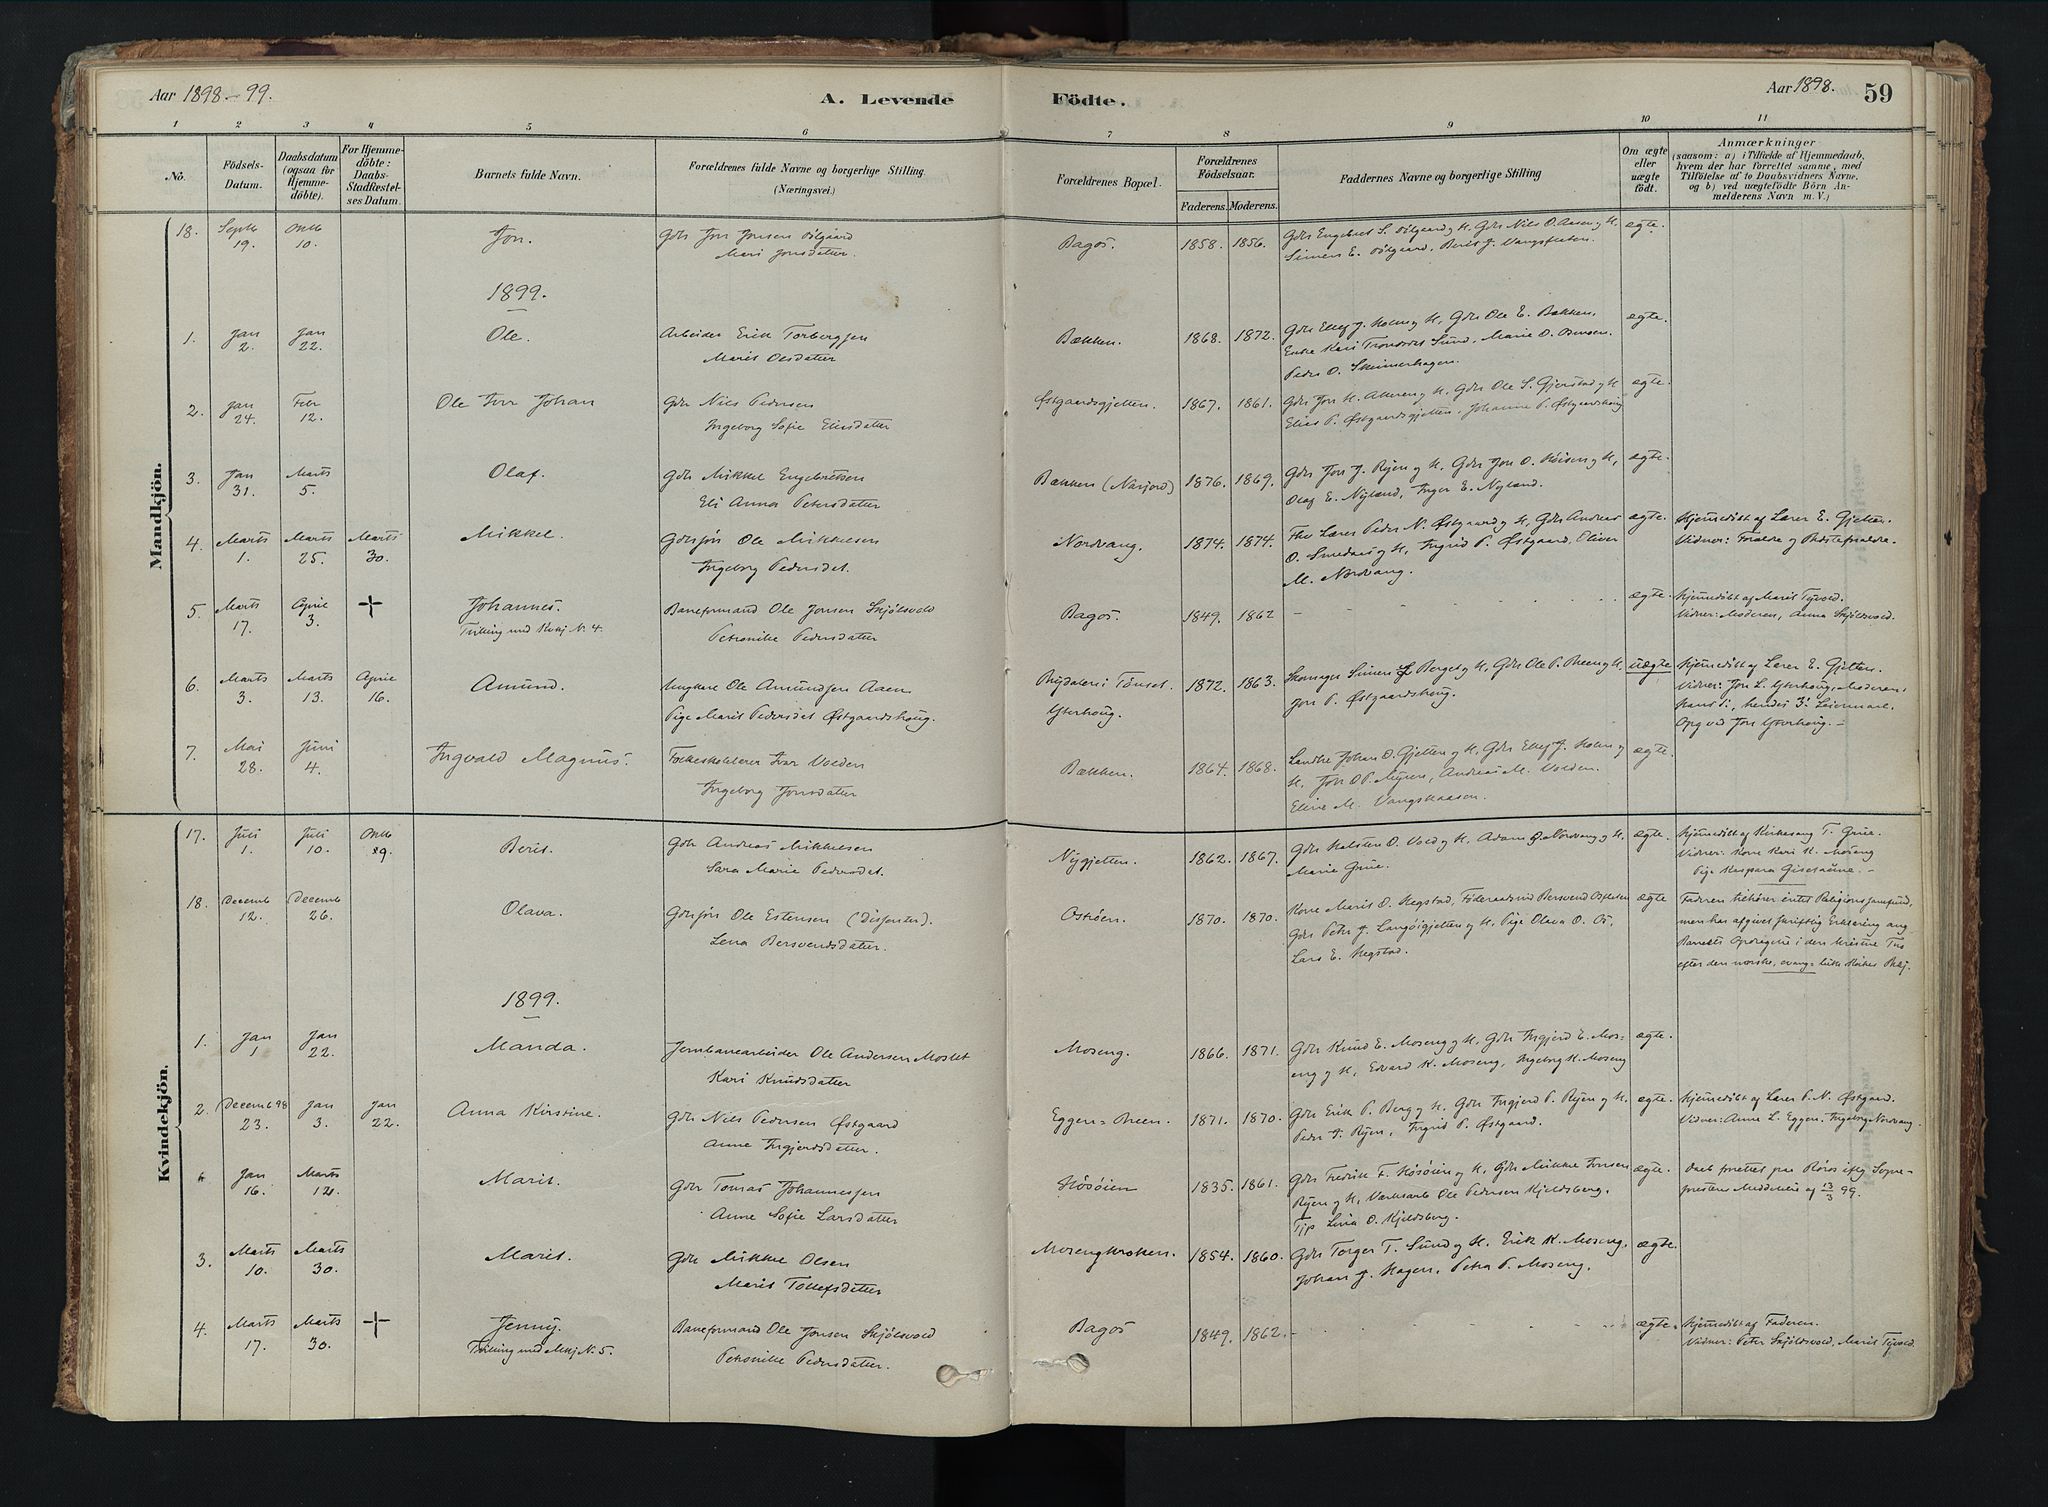 Aar 1898-99.
A. Levende
Födte.
Aar 1898.
59
1 2 3 4 5 6 7 8 9 10 11
No.
Födsels-
Datum.
Daabsdatum
(ogsaa for
Hjemme-
döbte).
For Hjemme-
döbte:
Daabs-
Stadfæstel-
ses Datum.
Barnets fulde Navn.
Forældrenes fulde Navne og borgerlige Stilling
(Næringsvei.)
Forældrenes Bopæl.
Forældrenes
Födselsaar.
Faderens. Moderens.
Faddernes Navne og borgerlige Stilling
Om ægte
eller
uægte
födt.
Anmærkninger
(saasom: a) i Tilfælde af Hjemmedaab,
hvem der har forrettet samme, med
Tilföielse af to Daabsvidners Navne,
og b) ved uægtefödte Börn An-
melderens Navn m. V.)
Mandkjön.
18. Septb 19. Oktb 10.
Jon.
Gdr Jon Jonsen Dölgaard
Mari Jonsdatter.
Bagös. 1858. 1856.
Gdr Engebret S. Dölgaard og H. Gdr Nils O. Aasen og H.
Simen E. Dölgaard, Berit J. Vangsfeeten.
ægte.
1899.
1. Jan 2. Jan 22.
Ole.
Arbeider Erik Torbergsen
Marit Olsdatter
Bækken. 1868. 1872.
Gdr Ellef J. Holm og H, Gdr Ole E. Bækken,
Enke Kari Trondsdet Sund, Marie O. Osmoen.
Peder O. Skinnerhagen.
ægte.
2. Jan 24. Febr 12.
Ole Ivar Johan
Gdr Nils Pedersen
Ingeborg Sofie Eliasdatter
Østgaardsgjelten. 1867. 1861.
Gdr Jon H. Akeren og H, Gdr Ole S. Gjerstad og H
Elias P. Østgaardsgjelten, Johanne P. Østgaardshoug
ægte.
3. Jan 31. Marts 5.
Olaf.
Gdr Mikkel Engebretsen
Eli Anna Petersdatter
Bækken (Narjord) 1876. 1869.
Gdr Jon J. Ryen og H, Gdr Jon O. Röisen og H,
Olaf E. Nyland, Inger E. Nyland.
ægte.
4. Marts 1. Marts 25. Marts 30.
Mikkel.
Gdrsön Ole Mikkelsen
Ingeborg Pedersdet.
Nordvang. 1874. 1874.
Fhv Lærer Peder N. Østgaard og H, Gdr Andreas
O. Smednes og H, Ingrid P. Østgaard, Eliver
M. Nordvang.
ægte.
Hjemmedöbt af Lærer E. Gjelten.
Vidner: Forældre og Bedsteforældre.
5. Marts 17. April 3. +
Johannes.
Trilling med Kvkj N. 4.
Baneformand Ole Jonsen Skjölsvold
Petronille Pedersdatter
Bagös. 1849. 1862
ægte.
Hjemmedöbt af Marit Tyvold.
Vidner: Moderen, Anna Skjölsvold.
6. Marts 3. Marts 13. April 16.
Amund.
Ungkarl Ole Amundsen Aaen
Pige Marit Pedersdet Østgaardshoug.
Brydalen i Tönset.
Ytterhoug.
1872. 1863.
Skomager Simen J Berget og H, Gdr Ole P. Breen og H.
Jon P. Østgaardshoug.
uægte
Hjemmedöbt af Lærer E. Gjelten.
Vidner: Jon L. Ytterhoug, Moderen.
Hans 1ste, hendes 3die Leiermaal.
Opg ved Jon Ytterhoug.
7. Mai 28. Juni 4.
Ingvald Magnus.
Folkeskolelærer Ivar Volden
Ingeborg Jonsdatter
Bækken. 1864. 1868.
Landhr Johan O. Gjelten og H, Gdr Ellef J. Holm og
H, Jon O P. Myren, Andreas M. Volden.
Eline M. Vangskaasen.
ægte.
Kvindekjön.
17. Juli 1. Juli 10. Oktb 29.
Berit.
Gdr Andreas Mikkelsen
Sara Marie Pedersdet.
Nygjelten. 1862. 1867.
Gdr Halsten O. Vold og H, Adam O. Nordvang og H.
Marie Grue.
ægte.
Hjemmedöbt af Kirkesang T. Grue.
Vidner: Kone Kari K. Moseng
Pige Kaspara
18. Decemb 12. Decemb 26.
Olava.
Gdrsön Ole Estensen (Dissenter).
Lena Bersvendsdatter.
Oströen. 1870. 1870.
Kone Marit O. Hegstad, Föderaadsmd Bersvend Osteröen
Gdr Peter J. Langöigjelten og H, Pige Olava O. Os,
Lars E. Hegstad.
ægte
Faderen tilhörer intet Religionssamfund,
men har afgivet skriftlig Erklæring ang
Barnets Opdragelse i den kristne Tro
efter den norske, evang-luth Kirkes Bekj.
1899.
1. Jan 1 Jan 22.
Manda.
Jernbanearbeider Ole Andersen Moslet
Kari Knudsdatter
Moseng. 1866. 1871.
Gdr Knud E. Moseng og H, Gdr Ingjerd E. Mos-
eng og H, Edvard K. Moseng, Ingeborg K. Moseng
ægte.
2. Decemb 98 23. Jan 3. Jan 22.
Anna Kirstine.
Gdr Nils Pedersen Østgaard
Anne Ingjerdsdatter.
Eggen-Breen. 1871. 1870.
Gdr Erik P. Berg og H, Gdr Ingjerd P. Ryen og H.
Peder I. Ryen, Ingrid P. Østgaard.
ægte.
Hjemmedöbt af Lærer P. N. Østgaard.
Vidner: Anne L. Eggen. Ingeborg Nordvang.
Jan 16. Marts 12.
Marit.
Gdr Tomas Johannessen
Anne Sofie Larsdatter
Hösöien 1835. 1861.
Gdr Fredrik F. Hösöien og H, Gdr Mikkel Jonsen
Ryen og H, Værksarb Ole Pedersen Kjeldsberg.
Tjp Lina O. Kjeldsberg.
ægte.
Daab forrettet paa Röros iflg Sogne-
prestens Meddelelse af 13/3 99.
3. Marts 10. Marts 30.
Marit.
Gdr Mikkel Olsen
Marit Tollefsdatter
Mosengkroken. 1854. 1860.
Gdr Torger T. Sund og H. Erik K. Moseng,
Johan J. Hagen, Petra P. Moseng.
ægte.
4. Marts 17. Marts 30. +
Jenny.
Trilling med Mkj N. 5.
Baneformand Ole Jonsen Skjölsvold
Petronille Pedersdatter.
Bagös 1849. 1862.
ægte.
Hjemmedöbt af Faderen.
Vidner: Peter Skjölsvold, Marit Tyvold.